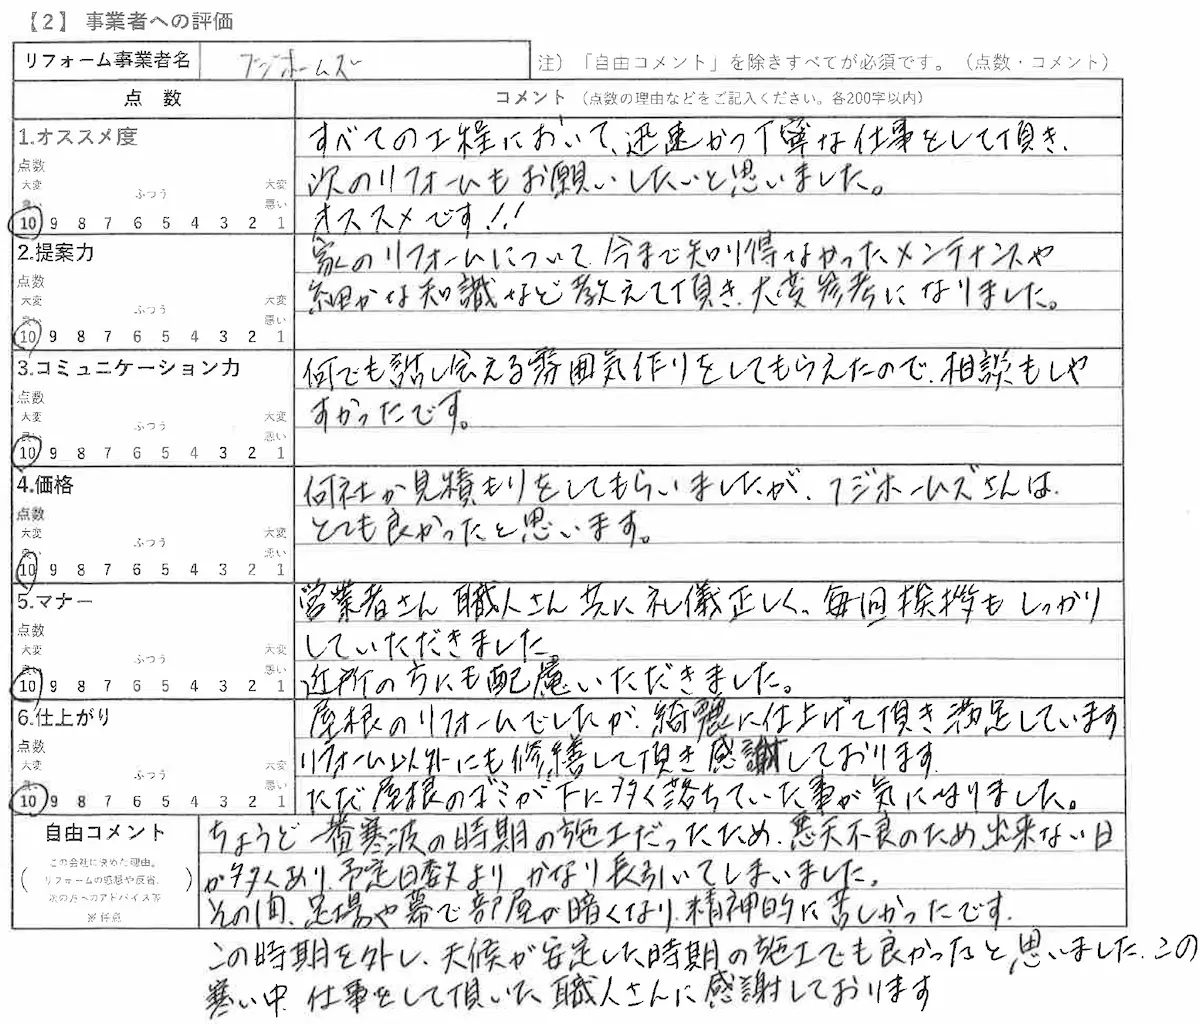 【2】 事業者への評価
リフォーム事業者名 フジホームズ 注）「自由コメント」を除きすべてが必須です。（点数・コメント）
点 数 コメント （点数の理由などをご記入ください。各200字以内）
1.オススメ度
点数
大変良い ふつう 大変悪い
10 9 8 7 6 5 4 3 2 1
すべての工程において、迅速かつ丁寧な仕事をして頂き、
次のリフォームもお願いしたいと思いました。
オススメです!!
2.提案力
点数
大変良い ふつう 大変悪い
10 9 8 7 6 5 4 3 2 1
家のリフォームについて、今まで知り得なかったメンテナンスや
細かな知識など教えて頂き、大変参考になりました。
3.コミュニケーション力
点数
大変良い ふつう 大変悪い
10 9 8 7 6 5 4 3 2 1
何でも話し会える雰囲気作りをしてもらえたので、相談もしや
すかったです。
4.価格
点数
大変良い ふつう 大変悪い
10 9 8 7 6 5 4 3 2 1
何社か見積もりをしてもらいましたが、フジホームズさんは、
とても良かったと思います。
5.マナー
点数
大変良い ふつう 大変悪い
10 9 8 7 6 5 4 3 2 1
営業者さん 職人さん 共に礼儀正しく、毎回挨拶もしっかり
していただきました。
近所の方にも配慮いただきました。
6.仕上がり
点数
大変良い ふつう 大変悪い
10 9 8 7 6 5 4 3 2 1
屋根のリフォームでしたが、綺麗に仕上げて頂き満足しています
リフォーム以外にも修繕して頂き感謝しております。
ただ屋根のゴミが下に多く落ちていた事が気になりました。
自由コメント
（この会社に決めた理由。
リフォームの感想や反省、
次の方へのアドバイス等
※任意）
ちょうど一番寒波の時期の施工だったため、悪天不良のため出来ない日
が多くあり、予定日数よりかなり長引いてしまいました。
その間、足場や幕で部屋が暗くなり、精神的に苦しかったです。
この時期を外し、天候が安定した時期の施工でも良かったと思いました。この
寒い中、仕事をして頂いた職人さんに感謝しております